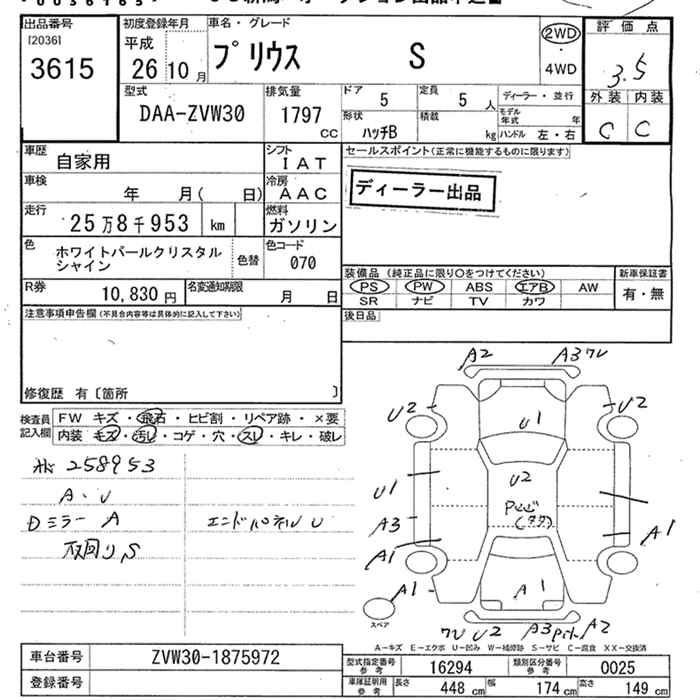 出品番号 初度登録年月 車名・グレード 評価点
[2036]
3615 平成 26 10月 プリウス S 2WD・4WD 3.5
型式 排気量 ドア 定員 ディーラー・並行 外装 内装
DAA-ZVW30 1797 CC 5 5人 モデル年式 年 C C
形状 ハッチB 積載 kg ハンドル 左・右
車歴 自家用 シフト IAT セールスポイント(正常に機能するものに限ります)
車検 年 月( 日) 冷房 AAC ディーラー出品
走行 25万8千953 km 燃料 ガソリン
色 ホワイトパールクリスタル 色替 色コード
シャイン 070
装備品(純正品に限り○をつけてください) 新車保証書
R券 10,830円 名変通知期限 月 日 PS PW ABS エアB AW 有・無
SR ナビ TV カワ
注意事項申告欄(不具合内容等は具体的に記入して下さい) 後日品
修復歴 有〔箇所 〕
検査員記入欄 FW キズ・飛石・ヒビ割・リペア跡・×要
内装 キズ・汚し・コゲ・穴・スレ・キレ・破レ
258953
A・U
Dミラー A エンドパネル U
A2 A3 ワレ
U2 U1 U2
U1 U2
A3 A1
A1
A1 A1
スペア
ワレ U2 A3 A2
A-キズ E-エクボ U-凹み W-補修跡 S-サビ C-腐食 XX-交換済
車台番号 ZVW30-1875972 型式指定番号 参考 16294 類別区分番号 参考 0025
登録番号 車庫証明用 参考 長さ 448 cm 幅 174 cm 高さ 149 cm